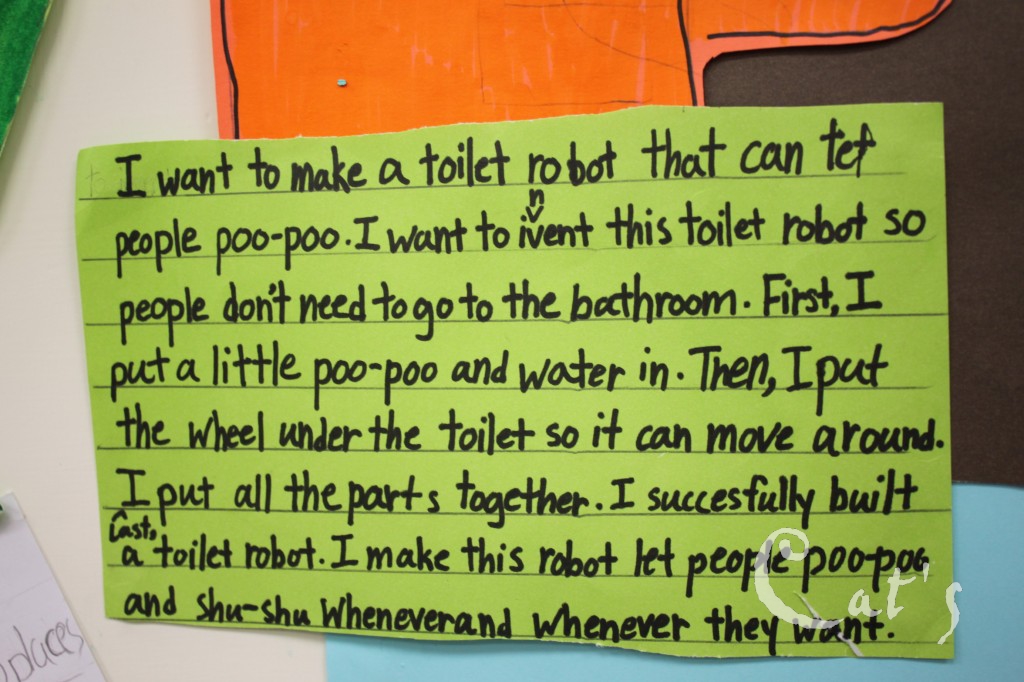 I want to make a toilet robot that can let
people poo-poo. I want to invent this toilet robot so
people don't need to go to the bathroom. First, I
put a little poo-poo and water in. Then, I put
the wheel under the toilet so it can move around.
Last, I put all the parts together. I succesfully built
a toilet robot. I make this robot let people poo-poo
and shu-shu whenever and whenever they want.
Cat's
places